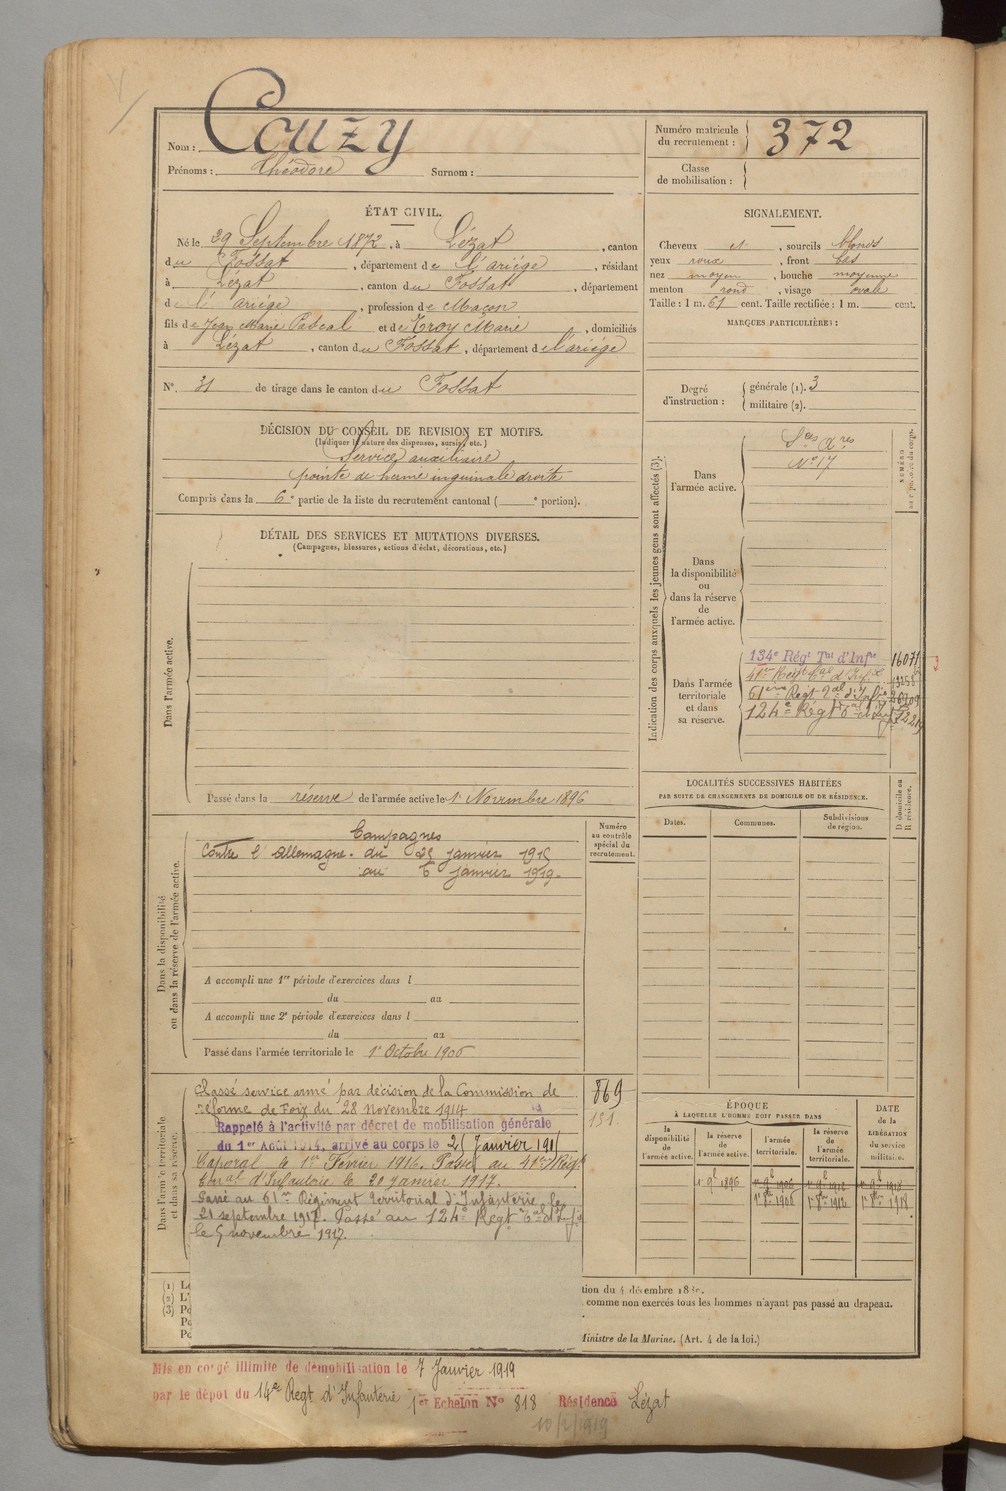 Nom : Couzy
Prénoms : Théodore Surnom :
Numéro matricule
du recrutement : 372
Classe
de mobilisation :
ÉTAT CIVIL.
Né le 29 Septembre 1872, à Lézat, canton
du Fossat, département de l'ariége, résidant
à Lézat, canton du Fossat, département
de l' ariége, profession de Maçon
fils de Jean Marie Pascal et de Troy Marie, domiciliés
à Lézat, canton du Fossat, département de l'ariége
N°. 31 de tirage dans le canton du Fossat
SIGNALEMENT.
Cheveux et, sourcils blonds
yeux roux, front bas
nez moyen, bouche moyenne
menton rond, visage ovale
Taille : 1 m. 61 cent. Taille rectifiée : 1 m. cent.
MARQUES PARTICULIÈRES :
Degré
d'instruction :
générale (1). 3
militaire (2).
DÉCISION DU CONSEIL DE REVISION ET MOTIFS.
(Indiquer la nature des dispenses, sursis, etc.)
Service auxiliaire
pointe de hernie inguinale droite
Compris dans la 6e partie de la liste du recrutement cantonal ( e portion).
DÉTAIL DES SERVICES ET MUTATIONS DIVERSES.
(Campagnes, blessures, actions d'éclat, décorations, etc.)
Dans l'armée active.
Passé dans la réserve de l'armée active le 1r Novembre 1896
Indication des corps auxquels les jeunes gens sont affectés (3).
NUMÉRO
Dans
l'armée active.
N° 17
Dans
la disponibilité
ou
dans la réserve
de
l'armée active.
Dans l'armée
territoriale
et dans
sa réserve.
134e Régt Tal d'Infie 16071
41me Régt d'Infie
61eme Régt d'Infie
124e Régt
LOCALITÉS SUCCESSIVES HABITÉES
PAR SUITE DE CHANGEMENTS DE DOMICILE OU DE RÉSIDENCE.
Dates.
Communes.
Subdivisions
de région.
D domicile ou
R résidence.
Dans la disponibilité
ou dans la réserve de l'armée active.
Campagnes
Contre l'Allemagne. du 25 janvier 1915
au 6 janvier 1919.
Numéro
au contrôle
spécial du
recrutement.
A accompli une 1re période d'exercices dans l
du au
A accompli une 2e période d'exercices dans l
du au
Passé dans l'armée territoriale le 1r Octobre 1906
Dans l'armée territoriale
et dans sa réserve.
Classé service armé par décision de la Commission de
réforme de Foix du 28 novembre 1914
Rappelé à l'activité par décret de mobilisation générale
du 1er Août 1914, arrivé au corps le 25 Janvier 1915
Caporal le 1er Février 1916. Passé au 41me Régt
Ter al d'Infanterie le 20 janvier 1917.
Passé au 61me Régiment Territorial d'Infanterie le
21 septembre 1917. Passé au 124e Régt Tal d'Infie
le 5 novembre 1917.
869
151
ÉPOQUE
À LAQUELLE L'HOMME DOIT PASSER DANS
DATE
de la
LIBÉRATION
du service
militaire.
la
disponibilité
de
l'armée active.
la réserve
de
l'armée active.
l'armée
territoriale.
la réserve
de
l'armée
territoriale.
1r 9bre 1896
(1)
(2)
(3)
tion du 4 décembre
comme non exercés tous les hommes n'ayant pas passé au drapeau.
Ministre de la Marine. (Art. 4 de la loi.)
Mis en congé illimité de démobilisation le 7 Janvier 1919
par le dépôt du 14e Régt d'Infanterie 1er Echelon N° 818 Résidence Lézat
10/2/1919